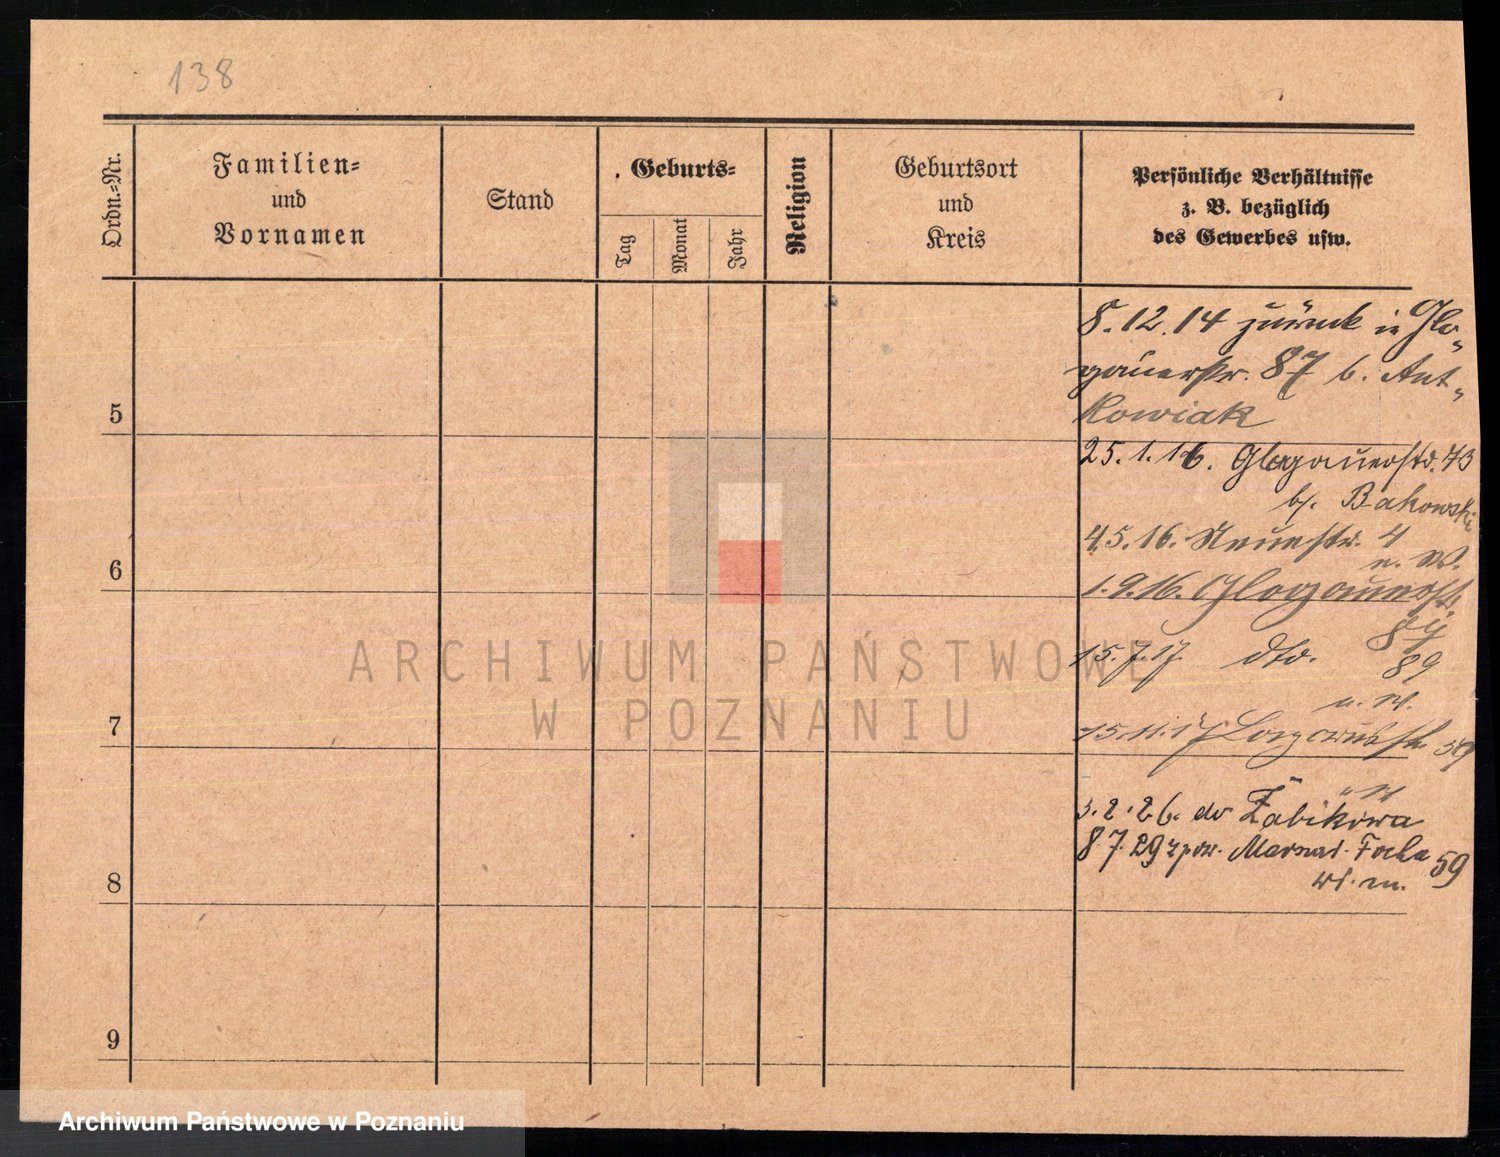 138
Ordn.=Nr.
Familien=
und
Vornamen
Stand
Geburts=
Tag
Monat
Jahr
Religion
Geburtsort
und
Kreis
Persönliche Verhältnisse
z. B. bezüglich
des Gewerbes usw.
8.12.14 zurück in Glo„
gauerstr. 87 b. Ant„
kowiak
5
25.1.16. Glogauerstr. 73
bf. Bakowski
4.5.16. Neuestr. 4
u. W.
6
1.9.16. Glogauerstr.
84
15.7.17. dto. 89
u. W.
7
15.11.17
3.2.26. do Żabikowa
8 7. 29 zpow. Marszał. Focha 59
wł. m.
8
9
ARCHIWUM PAŃSTWOWE
W POZNANIU
Archiwum Państwowe w Poznaniu